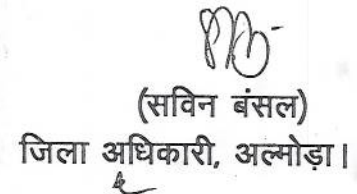 (सविन बंसल)
जिला अधिकारी, अल्मोड़ा।